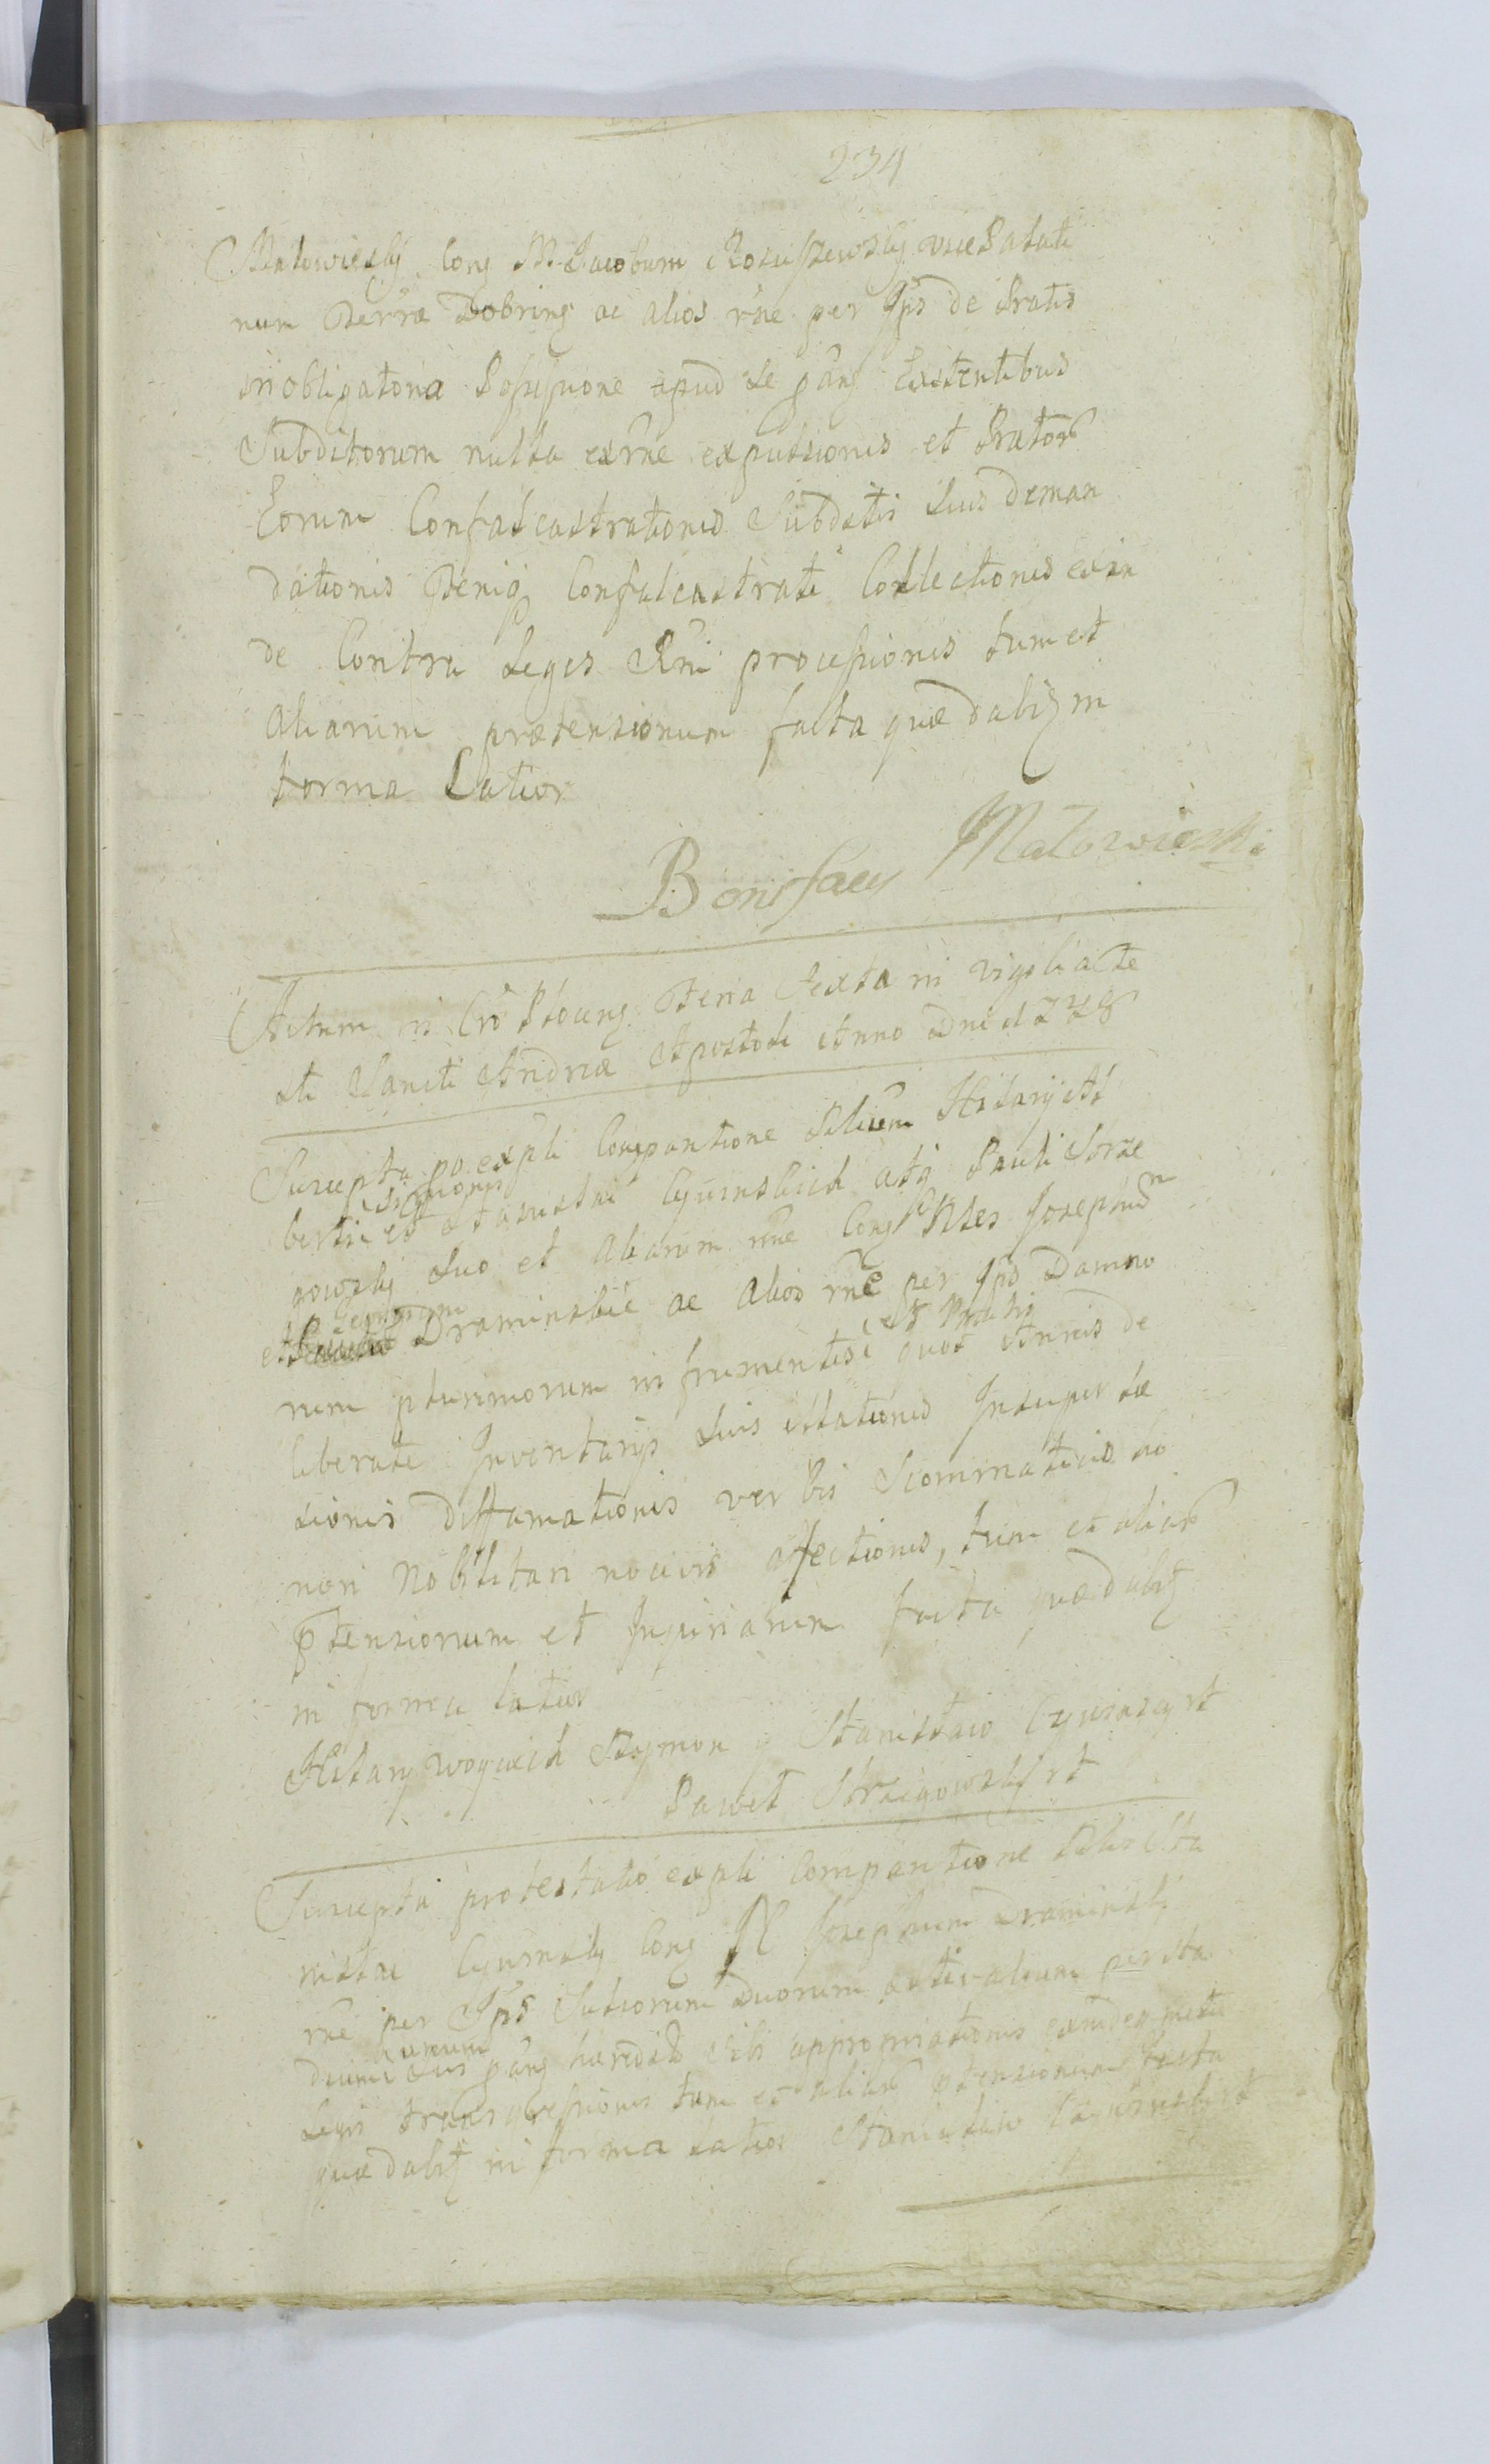 234
Małowieski Cong M. Jacobum Rosciszewski vice Palati
num Terræ Dobring ac alios rñe per Ips de Pratis
in obligatoria Possessione apud se pang Existentibus
Subditorum nulla exrñe expulsionis et Prator
Eorum Confalcastrationis Subditis suis deman
dationis Fæniq Confalcastrati Collectionis exin
de Contra Leges Rni processionis tum et
Aliarum prætensionum facta quæ dabitz in
forma Latior
Bonifacy Małowieski
Actum in Cro Ploceng Feria sexta in vigilia fe
sti Sancti Andreæ Apostoli Anno Dni 1728
Suscepta po expli Comparitione Nlium Hilary At
berti Sigmonis et Stanislai Cyurnskich atq Pauli Strze
gowski suo et Aliarum rñe Cong Nles Josephum
et Draminskie ac Alios rñe per Ips Damno
rum plurimorum in frumentis et Pratis quot Annis de
liberate Inventarijs suis illationis Insuper læ
sionis diffamationis verbis Scommaticis ho
nori Nobilitari nocivis affectionis, tum et aliar
ptensionum et Injuriarum facta quæ dabitz
in forma latior
Hilary Woyciech Szymon y Stanisław Cyurnscy rt
Paweł Strzegowski rt
Suscepta protestatio expli Comparitione Nlis Sta
nislai Cyurnski Cong N Josephum Draminski
rñe per Ips Duorum per sta
pang hæredit sibi appropriationis
Legis transgressionis tum et aliar ptensionum facta
quæ dabitz in forma latior Stanisław Cyurnski rt